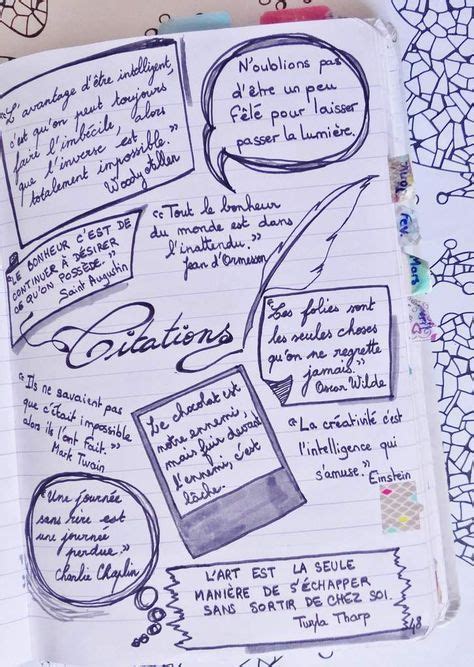 "L'avantage d'être intelligent,
c'est qu'on peut toujours
faire l'imbécile, alors
que l'inverse est
totalement impossible."
Woody Allen
N'oublions pas
d'être un peu
fêlé pour laisser
passer la lumière.
LE BONHEUR C'EST DE
CONTINUER À DÉSIRER
CE QU'ON POSSÈDE."
Saint Augustin
"Tout le bonheur
du monde est dans
l'inattendu."
Jean d'Ormesson
Citations
"Les folies sont
les seules choses
qu'on ne regrette
jamais."
Oscar Wilde
"Ils ne savaient pas
que c'était impossible
alors ils l'ont fait."
Mark Twain
Le chocolat est
notre ennemi,
mais fuir devant
l'ennemi, c'est
lâche.
"La créativité c'est
l'intelligence qui
s'amuse."
Einstein
"Une journée
sans rire est
une journée
perdue."
Charlie Chaplin
L'ART EST LA SEULE
MANIÈRE DE S'ÉCHAPPER
SANS SORTIR DE CHEZ SOI.
Twyla Tharp
48
Mars